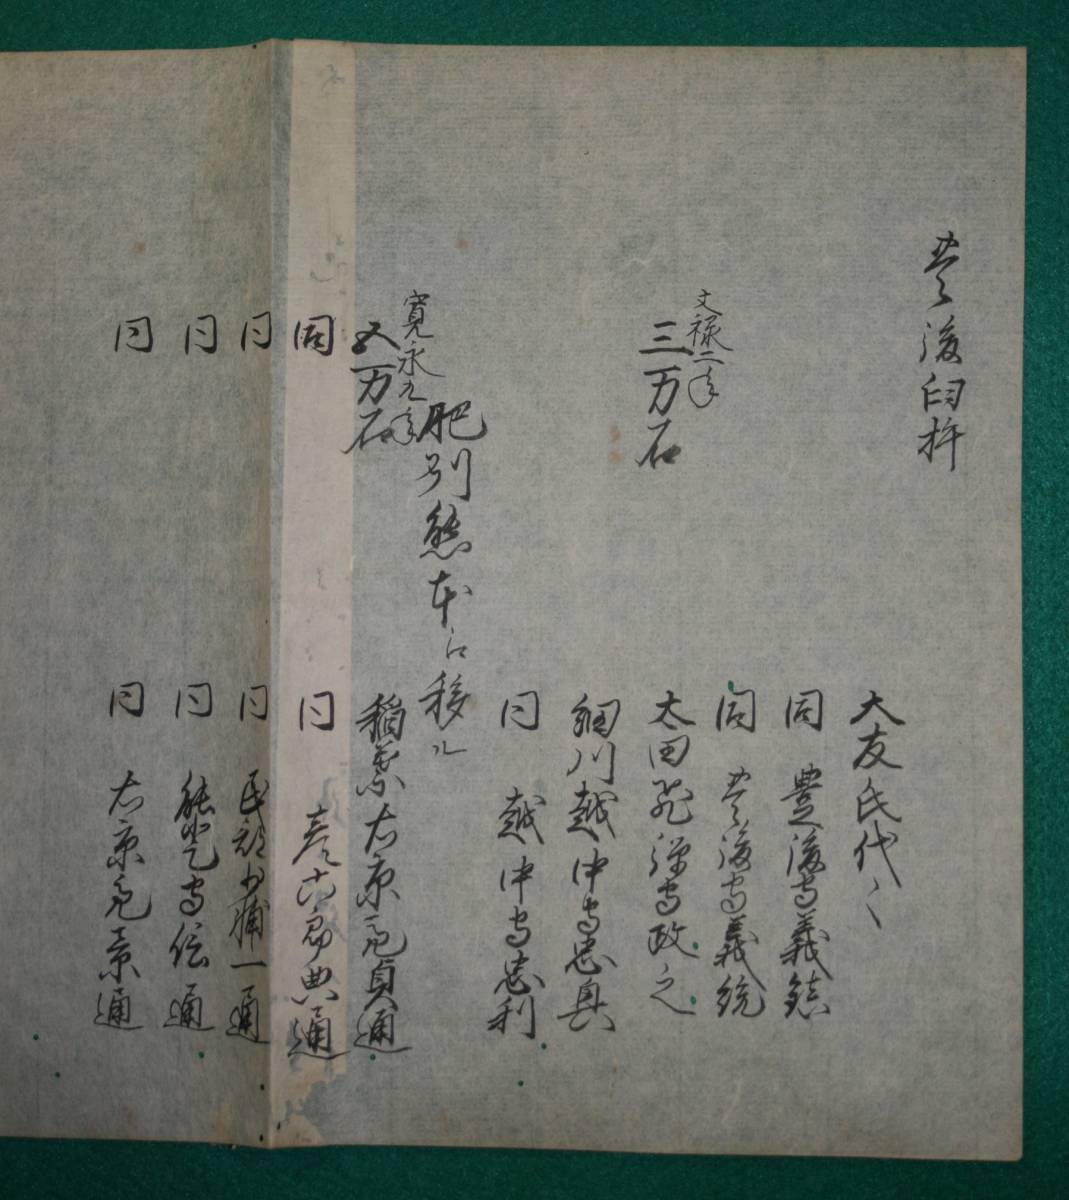 豊後臼杵
大友氏代々
同 豊後守義鎮
同 豊後守義統
文禄二年
三万石 太田飛弾守政之
細川越中守忠興
同 越中守忠利
肥州熊本江移ル
寛永九年
五万石 稲葉右京亮貞通
同 同 彦六郎典通
同 同 民部少輔一通
同 同 能登守信通
同 同 右京亮景通